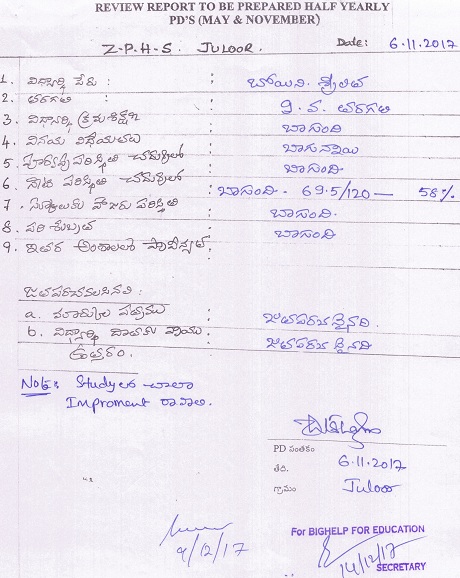 REVIEW REPORT TO BE PREPARED HALF YEARLY
PD'S (MAY & NOVEMBER)
Z-P-H-S. JULOOR. Date: 6-11-2017
1. విద్యార్థి పేరు : బోయిని శ్రీలత
2. తరగతి : 9. వ. తరగతి
3. విద్యార్థి క్రమశిక్షణ : బాగుంది
4. వినయ విధేయతలు : బాగున్నాయి
5 : బాగుంది
6 పరిస్థితి : బాగుంది - 69.5/120 — 58%
7. హాజరు పరిస్థితి : బాగుంది.
8. పరిశుభ్రత : బాగుంది
9. ఇతర అంశాలలో :
జతపరచవలసినవి :
a. మార్కుల పత్రము : జతపరచనైనది.
b. విద్యార్థి వ్రాయు : జతపరచనైనది
ఉత్తరం.
Note: Studyలో చాలా
Improment రావాలి.
PD సంతకం
తేది. 6-11-2017
గ్రామం Juloor
9/12/17
For BIGHELP FOR EDUCATION
14/12/17
SECRETARY